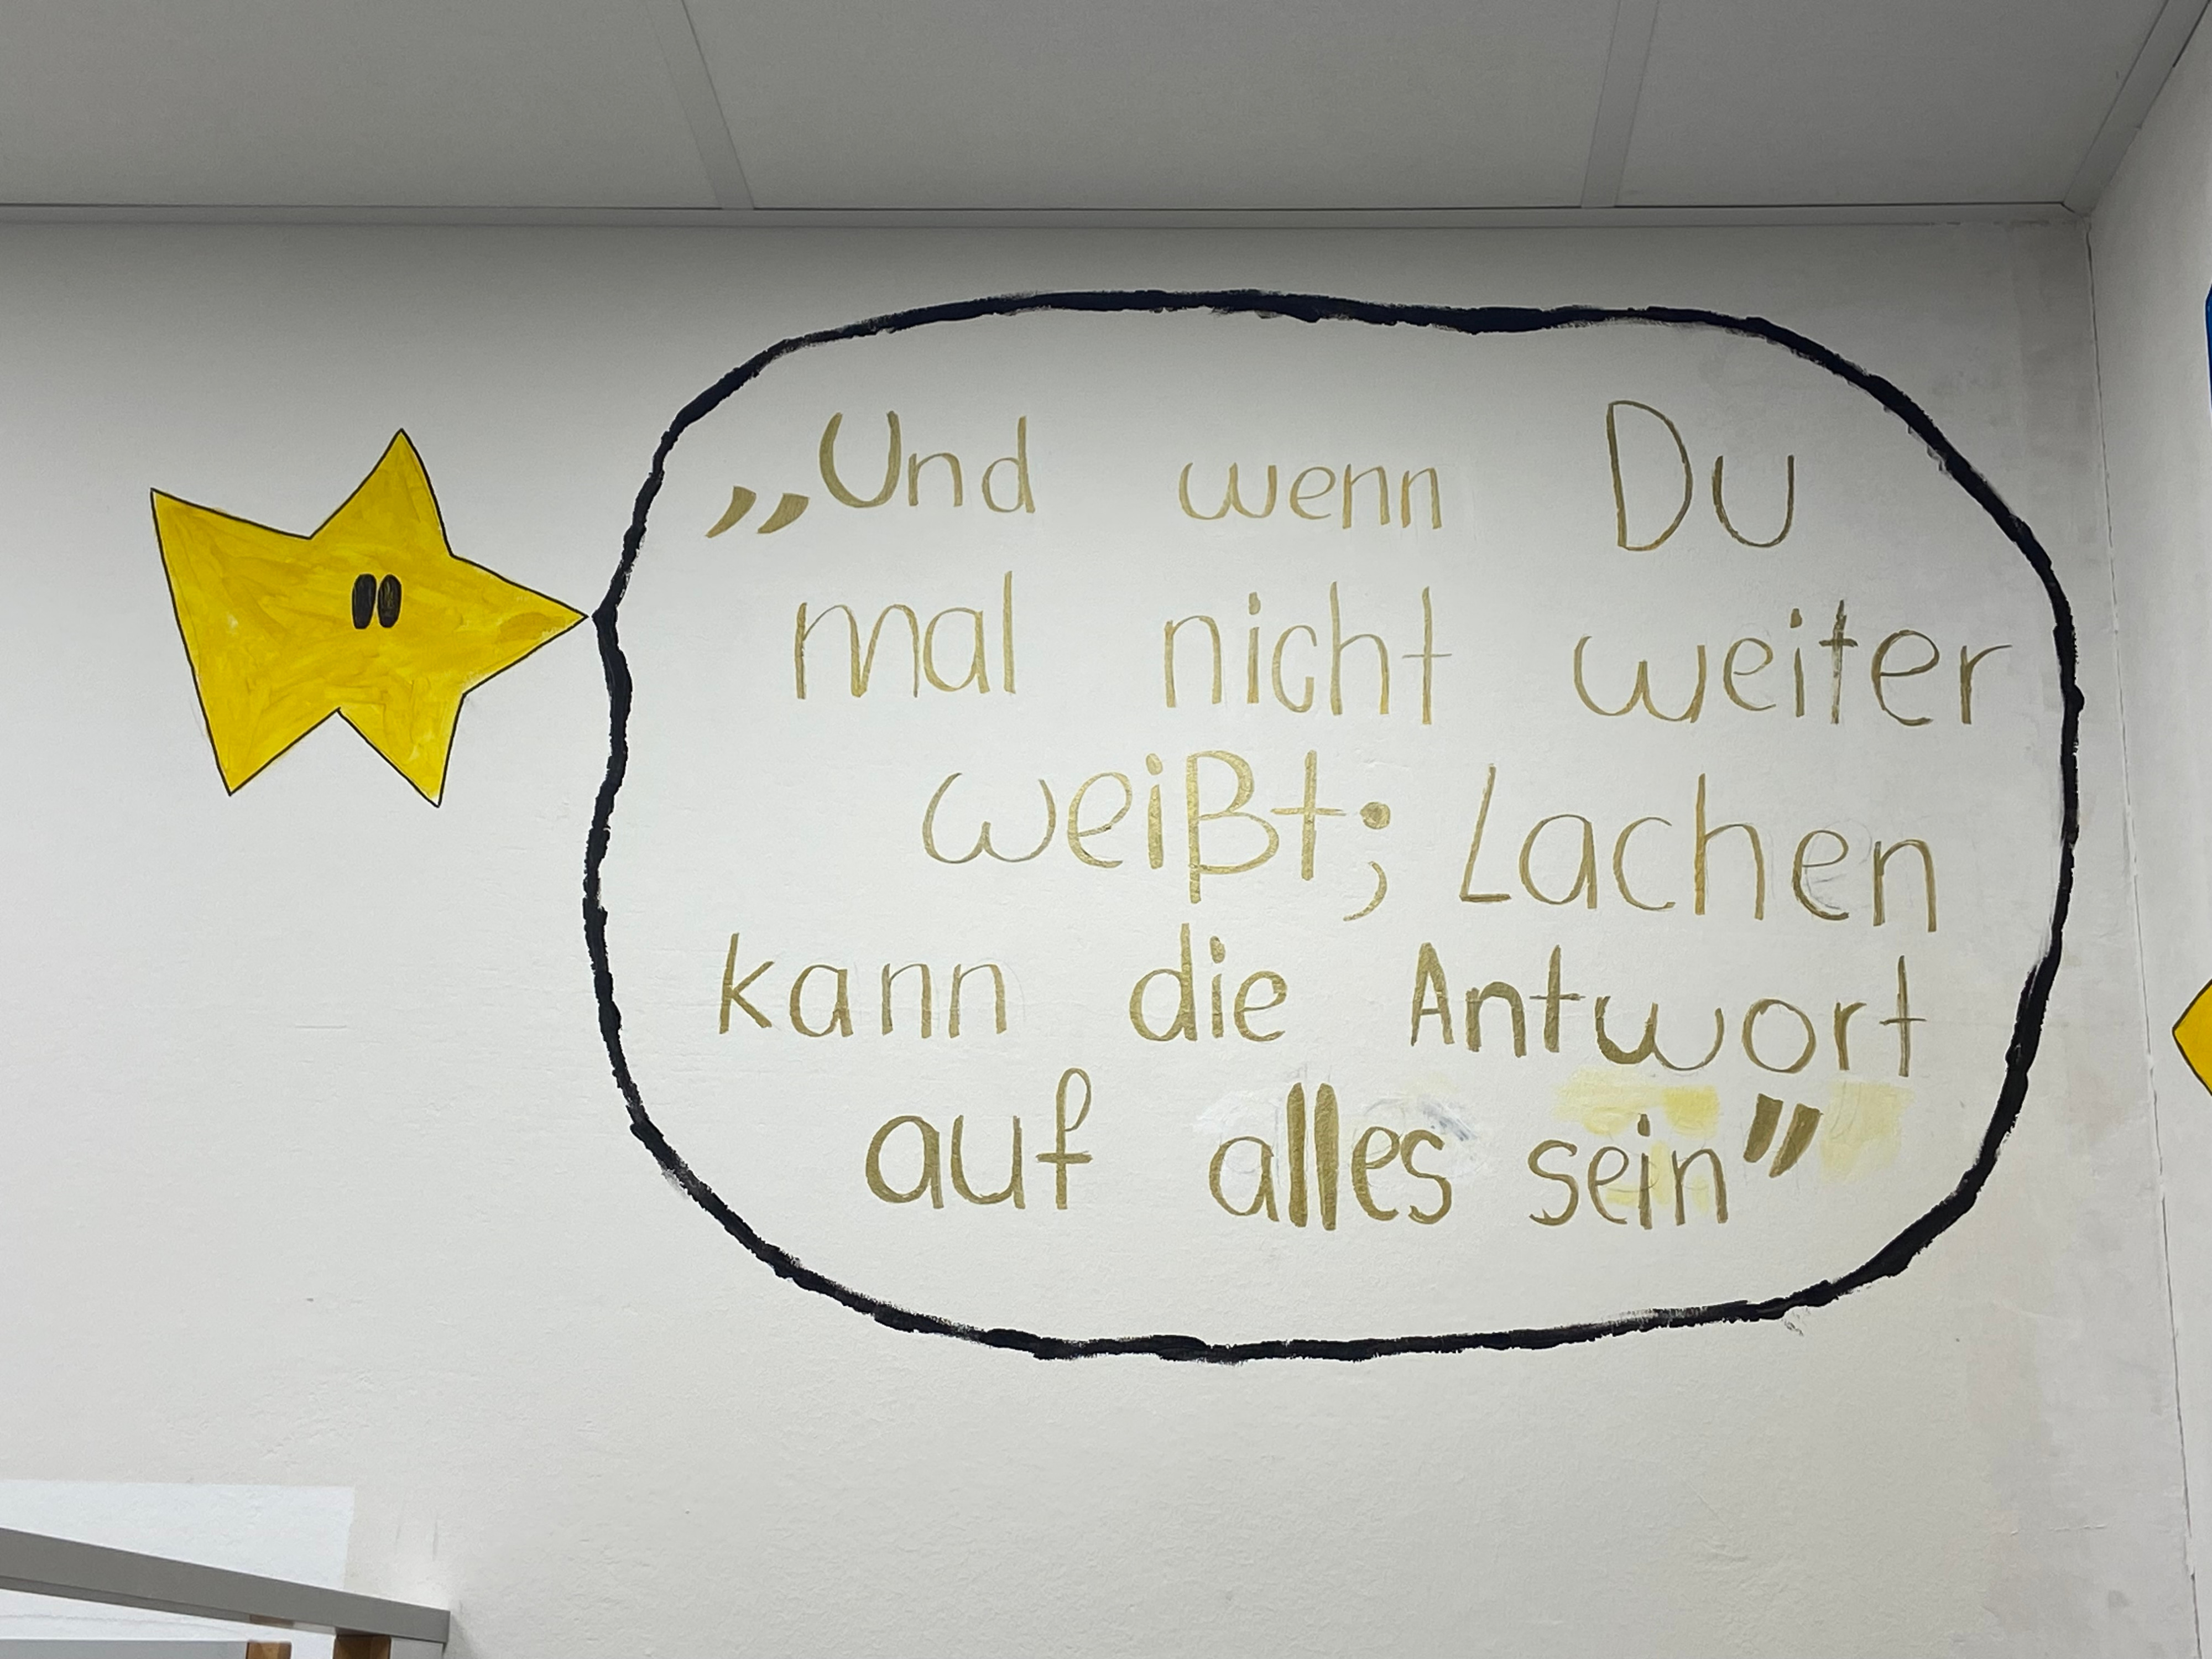 „Und wenn Du
mal nicht weiter
weißt; Lachen
kann die Antwort
auf alles sein”